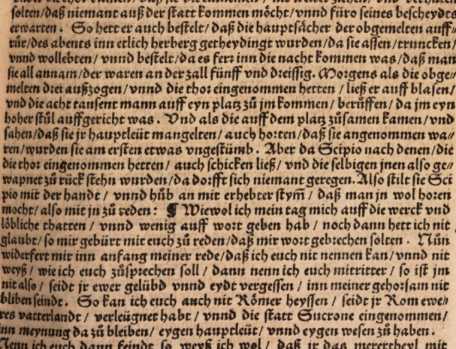 solten/daß niemant auß der statt kommen möcht/vnnd füro seines bescheydts
erwarten. So hett er auch bestelt/daß die hauptsächer der obgemelten auff-
rür/des abents inn etlich herberg getheydingt wurden/da sie assen/truncken/
vnnd wollebten/vnnd bestelt/da es ferr inn die nacht kommen was/daß man
sie all annam/der waren an der zall fünff vnd dreissig. Morgens als die obge-
melten drei außzogen/vnnd die thor eingenommen hetten/ließ er auff blasen/
vnd die acht tausent mann auff eyn platz zů jm kommen/berůffen/da jm eyn
hoher stůl auffgericht was. Vnd als die auff dem platz zůsamen kamen/vnd
sahen/daß sie jr hauptleüt mangelten/auch horten/daß sie angenommen wa-
ren/wurden sie am ersten etwas vngestümb. Aber da Scipio nach denen/die
die thor eingenommen hetten/auch schicken ließ/vnd die selbigen jnen also ge-
wapnet zů rück stehn wurden/da dorfft sich niemant geregen. Also stilt sie Sci
pio mit der handt/vnnd hůb an mit erhebter stym̄/daß man jn wol horen
mocht/also mit jn zů reden: ¶ Wiewol ich mein tag mich auff die werck vnd
löbliche thatten/vnnd wenig auff wort geben hab/noch dann hett ich nit
glaubt/so mir gebürt mit euch zů reden/daß mir wort gebrechen solten. Nůn
widerfert mir inn anfang meiner rede/daß ich euch nit nennen kan/vnnd nit
weyß/wie ich euch zůsprechen soll/dann nenn ich euch mitritter/so ist jm
nit also/seidt jr ewer gelübd vnnd eydt vergessen/inn meiner gehorsam nit
bliben seindt. So kan ich euch auch nit Römer heyssen/seidt jr Rom ewe-
res vatterlandt/verleügnet habt/vnnd die statt Sucrone eingenommen/
inn meynung da zů bleiben/eygen hauptleüt/vnnd eygen wesen zů haben.
Nenn ich euch dann feindt so weyß ich wol/daß jr das merertheyl mit